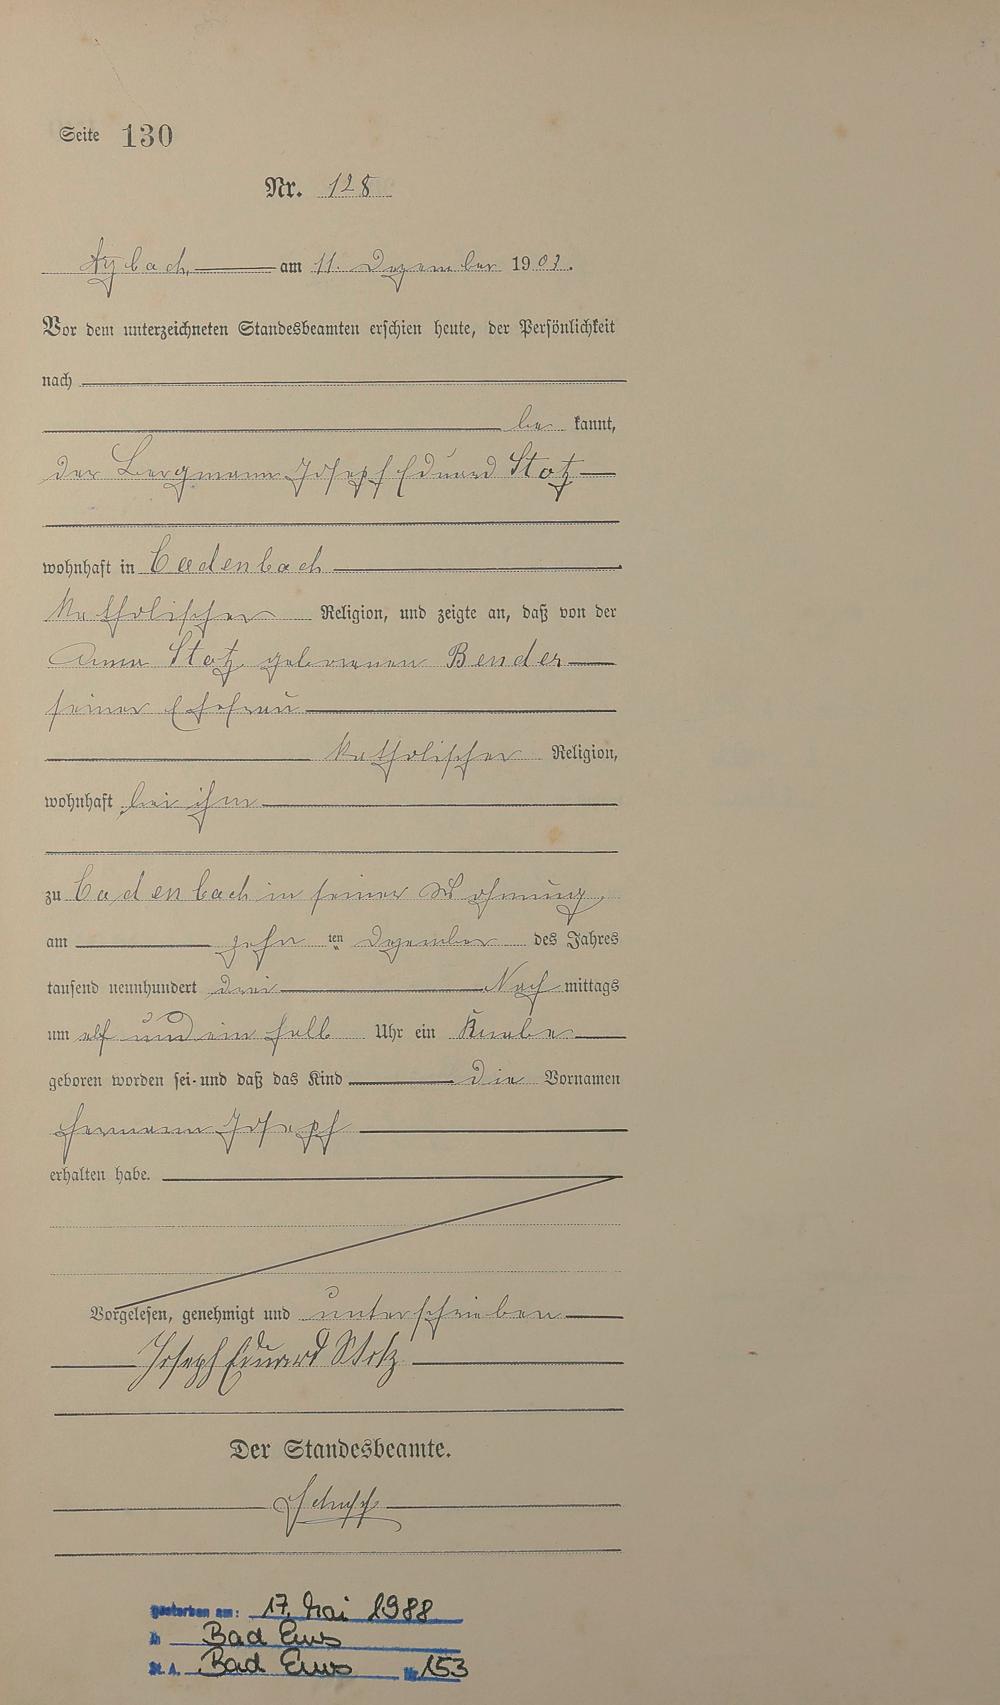 Seite 130
Nr. 128
Arzbach, am 11. Dezember 1903.
Vor dem unterzeichneten Standesbeamten erschien heute, der Persönlichkeit
nach
be kannt,
der Bergmann Joseph Eduard Stotz
wohnhaft in Cadenbach
katholischer Religion, und zeigte an, daß von der
Anna Stotz geborenen Bender
seiner Ehefrau
katholischer Religion,
wohnhaft bei ihm
zu Cadenbach in seiner Wohnung,
am zehn ten Dezember des Jahres
tausend neunhundert drei Nach mittags
um elf und ein halb Uhr ein Knabe
geboren worden sei und daß das Kind die Vornamen
Hermann Joseph
erhalten habe.
Vorgelesen, genehmigt und unterschrieben
Joseph Eduard Stotz
Der Standesbeamte.
gestorben am: 17. Mai 1988
in Bad Ems
St. A. Bad Ems Nr. 153